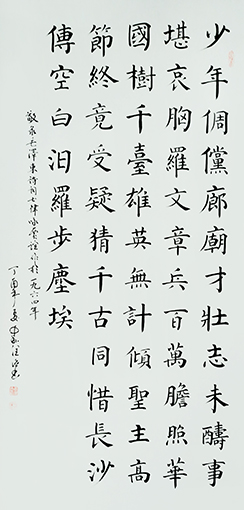 少年倜儻廊廟才壯志未醻事
堪哀胸羅文章兵百萬膽照華
國樹千臺雄英無計傾聖主高
節終竟受疑猜千古同惜長沙
傅空白汨羅步塵埃
敬录毛泽东诗词七律咏賈誼作於一九六四年
丁酉年